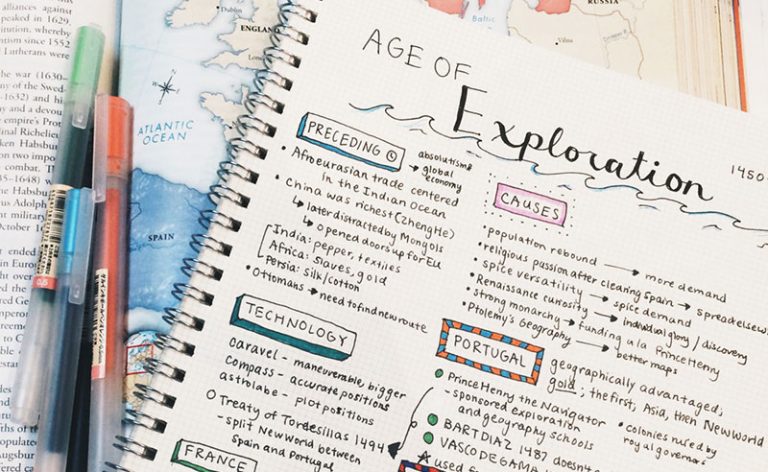 AGE OF
Exploration
1450-
PRECEDING
absolutism &
→ global
economy
• Afroeurasian trade centered
in the Indian Ocean
• China was richest (Zheng He)
↳ later distracted by Mongols
↳ opened doors up for EU
India: pepper, textiles
Africa: slaves, gold
Persia: silk/cotton
• Ottomans → need to find new route
CAUSES
• population rebound → more demand
• religious passion after cleaning Spain → spread elsew
• spice versatility → spice demand
• Renaissance curiosity → individual glory / discovery
• Strong monarchy → funding a la Prince Henry
• Ptolemy's Geography → better maps
TECHNOLOGY
caravel - maneuverable, bigger
compass - accurate positions
astrolabe - plot positions
Treaty of Tordesillas 1494
- split New World between
Spain and Portugal
PORTUGAL
geographically advantaged;
gold; the first; Asia, then New World
• Prince Henry the Navigator
- sponsored exploration
and geography schools
• colonies ruled by
royal governor
BART DIAZ 1487 doesn't
VASCO DE GAMA
used fo
FRANCE
Dublin
ENGLAND
ATLANTIC
OCEAN
SPAIN
Baltic
Vilna
RUSSIA
0.5
stitution, whereby
ation since 1552
Lutherans were
the war (1630–
ny of the Swed-
–1632) and his
my and a devou
e empire's Prot
dinal Richelieu
on two impo
combat. The
the Habsburg
us Adolph
military
October 16